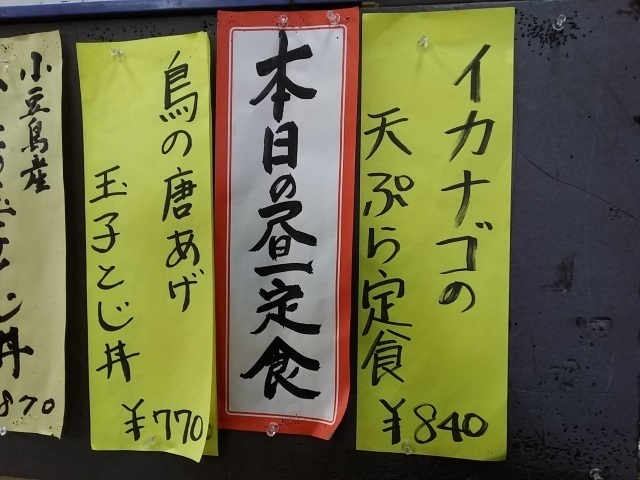 イカナゴの
天ぷら定食
¥840
本日の昼定食
鳥の唐あげ
玉子とじ丼
¥770
小豆島産
870